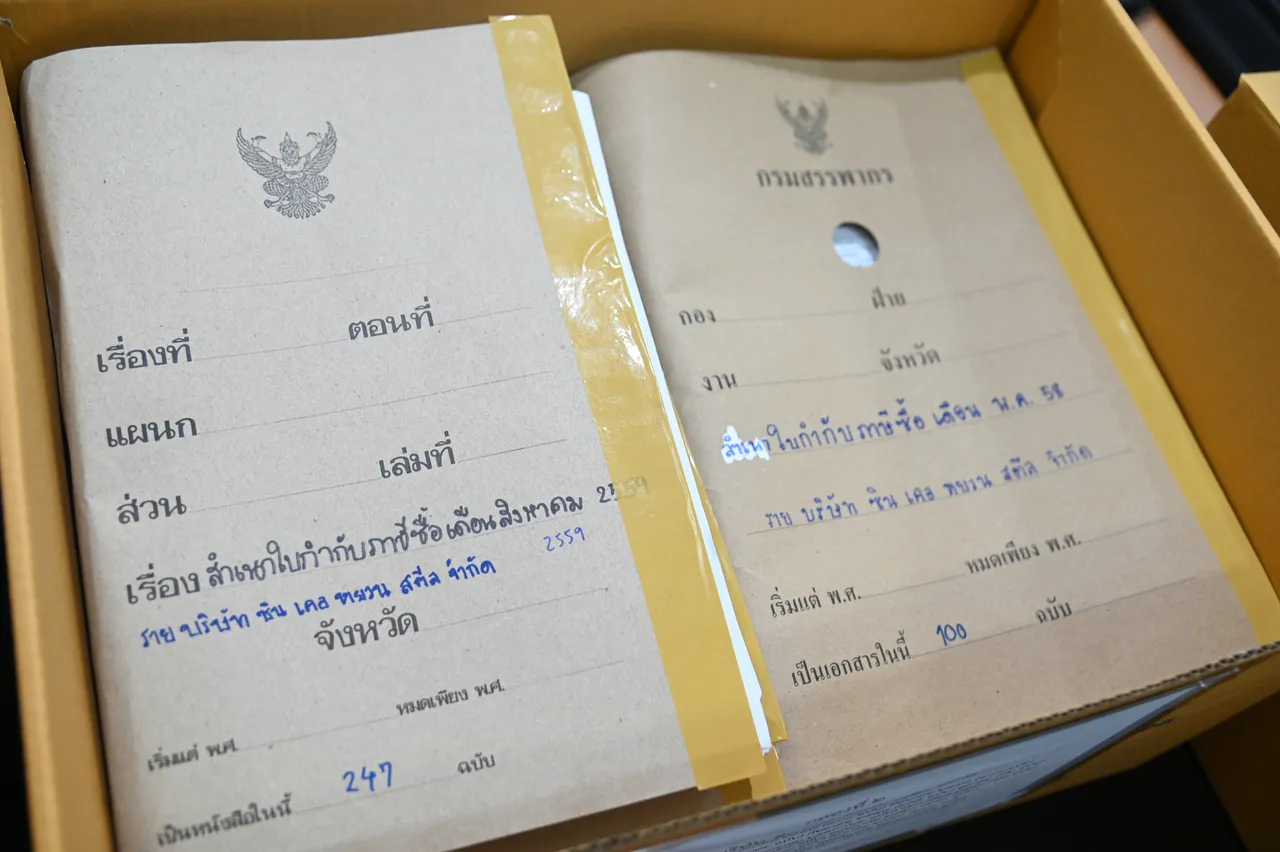 เรื่องที่ ตอนที่
แผนก
ส่วน เล่มที่
เรื่อง สำเนาใบกำกับภาษีซื้อเดือนสิงหาคม 2559
2559
ราย บริษัท ซิน เคอ หยวน สตีล จำกัด
จังหวัด
เริ่มแต่ พ.ศ. หมดเพียง พ.ศ.
เป็นหนังสือในนี้ 247 ฉบับ
กรมสรรพากร
กอง ฝ่าย
งาน จังหวัด
สำเนาใบกำกับภาษีซื้อ เดือน พ.ค. 58
ราย บริษัท ซิน เคอ หยวน สตีล จำกัด
เริ่มแต่ พ.ศ. หมดเพียง พ.ศ.
เป็นเอกสารในนี้ 100 ฉบับ